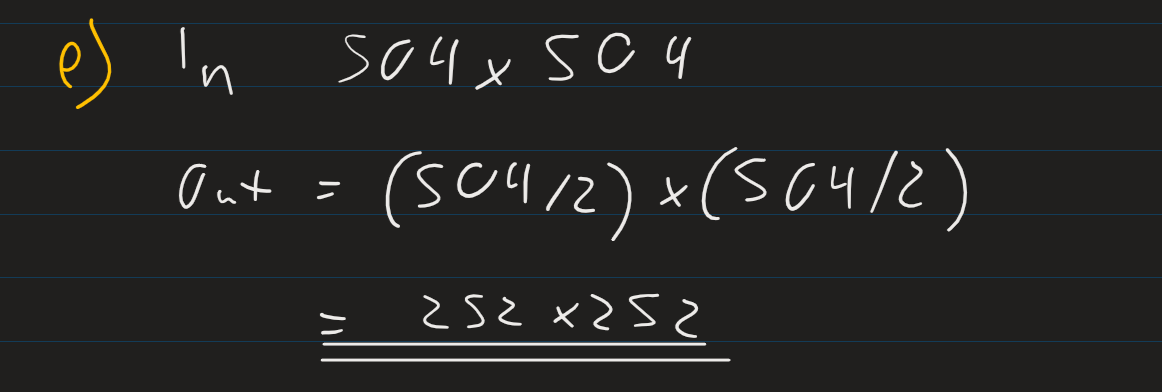 e) In 504 x 504
Out = (504/2) x (504/2)
= 252 x 252